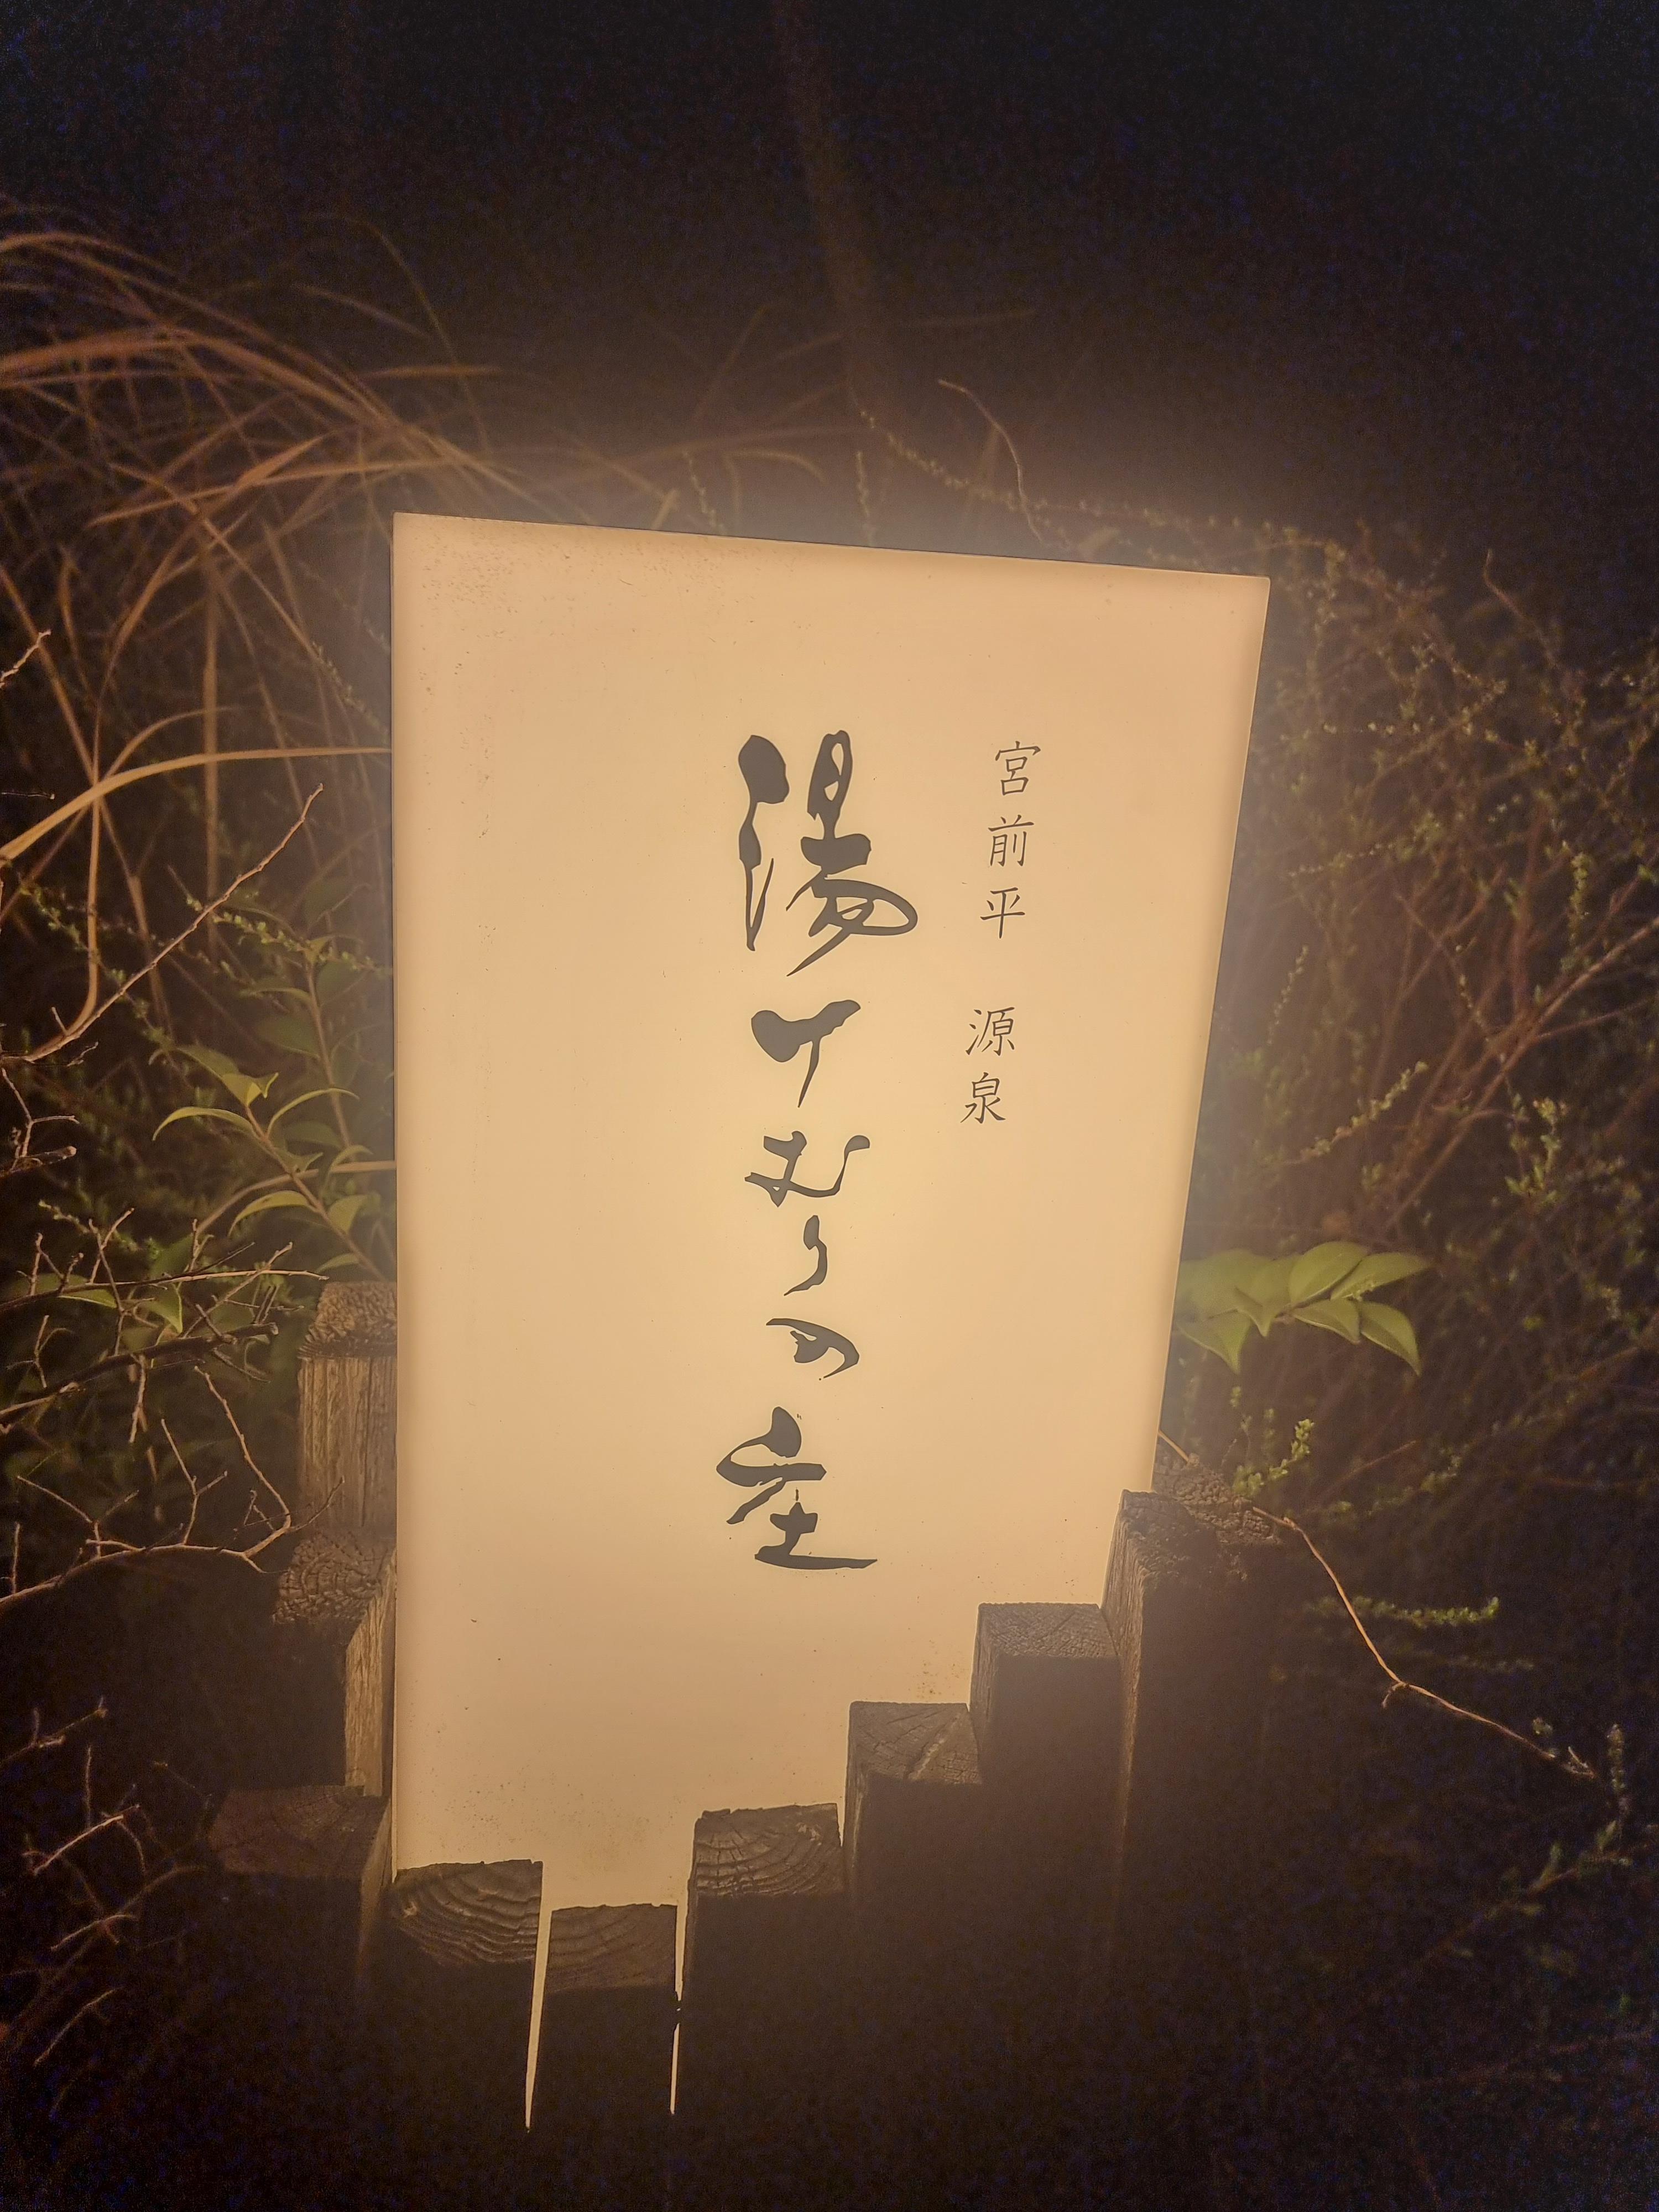 宮前平 源泉
湯けむりの庄